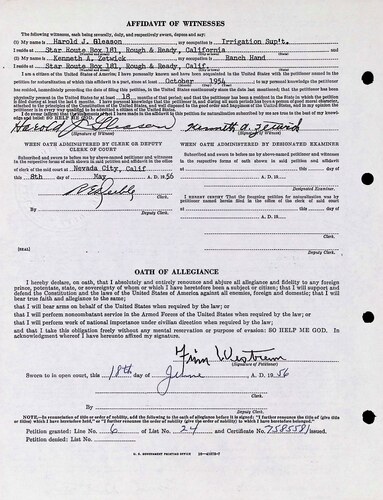 AFFIDAVIT OF WITNESSES
The following witnesses, each being severally, duly, and respectively sworn, depose and say:
(1) My name is Harold J. Gleason my occupation is Irrigation Sup't.
I reside at Star Route Box 181, Rough & Ready, California and
(2) My name is Kenneth A. Zetwick my occupation is Ranch Hand
I reside at Star Route Box 181, Rough & Ready, Calif.
I am a citizen of the United States of America; I have personally known and have been acquainted in the United States with the petitioner named in the
petition for naturalization of which this affidavit is a part, since at least October 1954
to my personal knowledge the petitioner has resided, immediately preceding the date of filing this petition, in the United States continuously since the date last mentioned; that the petitioner has been
physically present in the United States for at least 18 months of that period; and that the petitioner has been a resident in the State in which the petition
is filed during at least the last 6 months. I have personal knowledge that the petitioner is, and during all such periods has been a person of good moral character,
attached to the principles of the Constitution of the United States, and well disposed to the good order and happiness of the United States, and in my opinion the
petitioner is in every way qualified to be admitted a citizen of the United States.
I do swear (affirm) that the statements of fact I have made in this affidavit of this petition for naturalization subscribed by me are true to the best of my knowledge and belief: SO HELP ME GOD.
Harold J. Gleason Kenneth A. Zetwick
(Signature of Witness) (Signature of Witness)
WHEN OATH ADMINISTERED BY CLERK OR DEPUTY CLERK OF COURT
Subscribed and sworn to before me by above-named petitioner and witnesses
in the respective forms of oath shown in said petition and affidavit in the office
of the clerk of said court at Nevada City, Calif
this 8th day of May A. D. 1956
Clerk.
By Deputy Clerk.
[SEAL]
WHEN OATH ADMINISTERED BY DESIGNATED EXAMINER
Subscribed and sworn to before me by above-named petitioner and witnesses
in the respective forms of oath shown in said petition and affidavit at
this day of A. D. 19
Designated Examiner.
I HEREBY CERTIFY That the foregoing petition for naturalization was by
petitioner named herein filed in the office of the clerk of said court at
this day of A. D. 19
Clerk.
By Deputy Clerk.
OATH OF ALLEGIANCE
I hereby declare, on oath, that I absolutely and entirely renounce and abjure all allegiance and fidelity to any foreign
prince, potentate, state, or sovereignty of whom or which I have heretofore been a subject or citizen; that I will support and
defend the Constitution and the laws of the United States of America against all enemies, foreign and domestic; that I will
bear true faith and allegiance to the same;
that I will bear arms on behalf of the United States when required by the law; or
that I will perform noncombatant service in the Armed Forces of the United States when required by the law; or
that I will perform work of national importance under civilian direction when required by the law;
and that I take this obligation freely without any mental reservation or purpose of evasion: SO HELP ME GOD. In
acknowledgment whereof I have hereunto affixed my signature.
Finn Westrum
(Signature of Petitioner)
Sworn to in open court, this 18th day of June A. D. 1956
Clerk.
By Deputy Clerk.
NOTE.—In renunciation of title or order of nobility, add the following to the oath of allegiance before it is signed: "I further renounce the title of (give title
or titles) which I have heretofore held," or "I further renounce the order of nobility (give the order of nobility) to which I have heretofore belonged."
Petition granted: Line No. 6 of List No. 24 and Certificate No. 7585581 issued.
Petition denied: List No.
U. S. GOVERNMENT PRINTING OFFICE